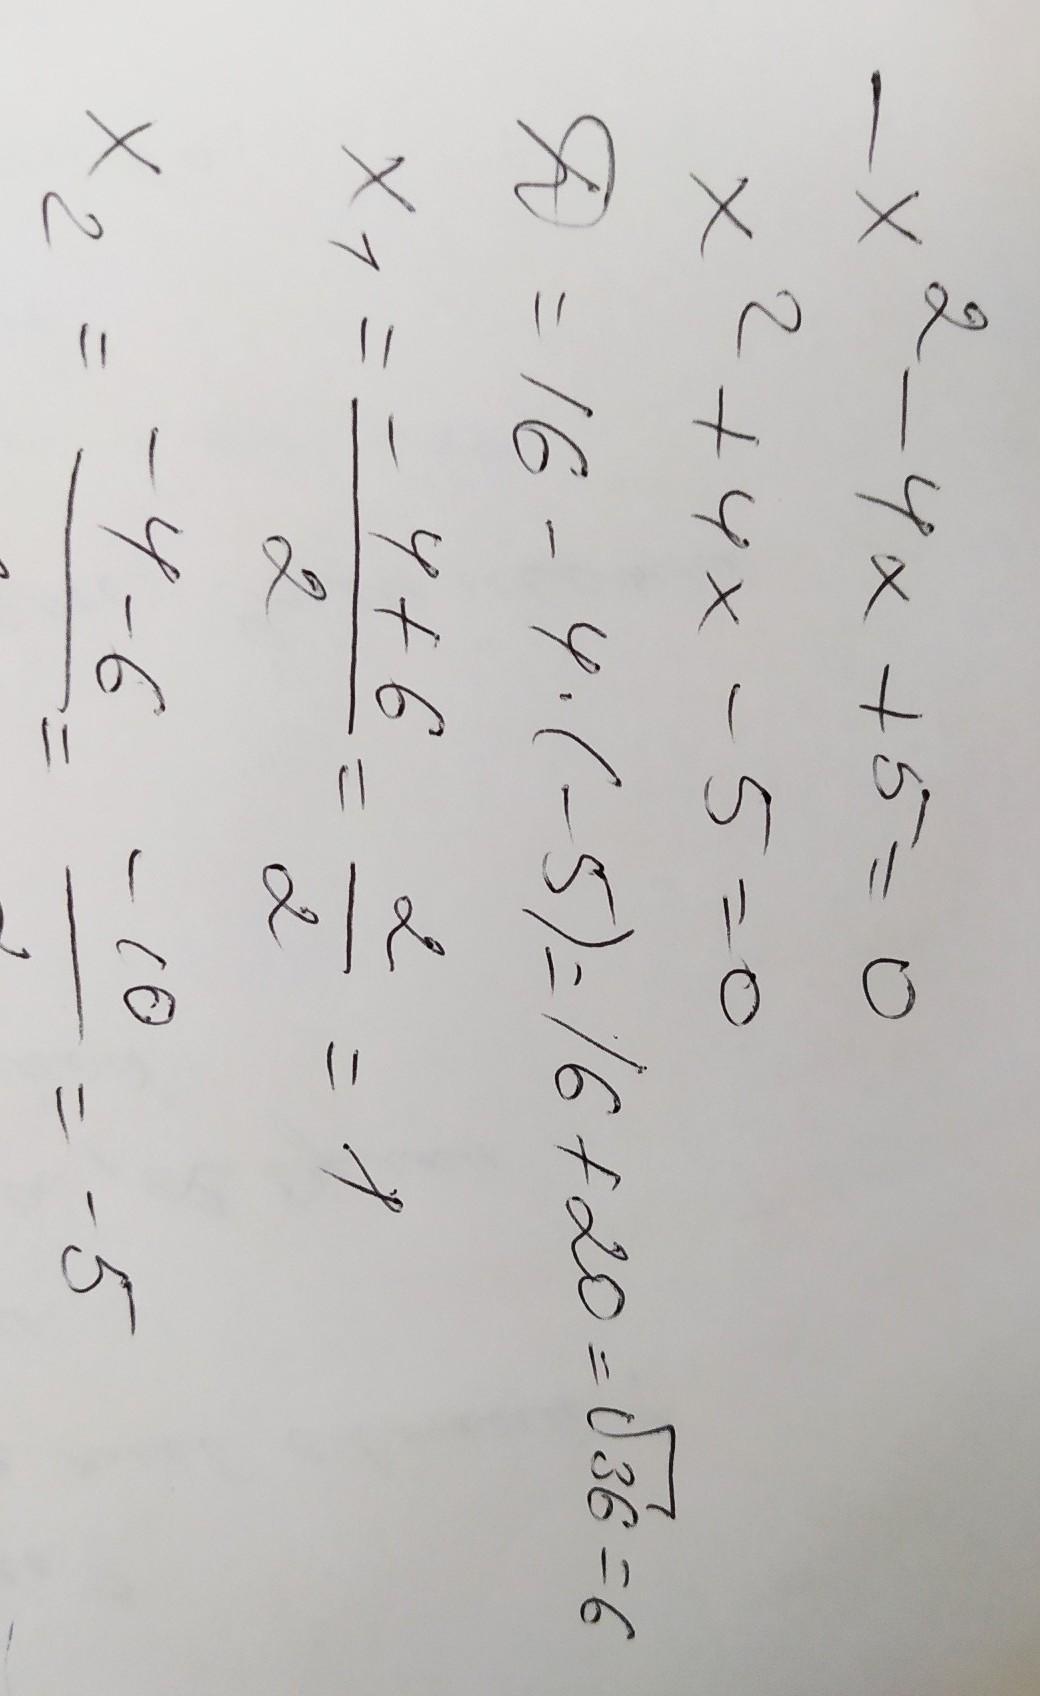 -x² - 4x + 5 = 0
x² + 4x - 5 = 0
D = 16 - 4·(-5) = 16 + 20 = √36 = 6
x₁ = (-4 + 6)/2 = 2/2 = 1
x₂ = -4 - 6 = -10 = -5